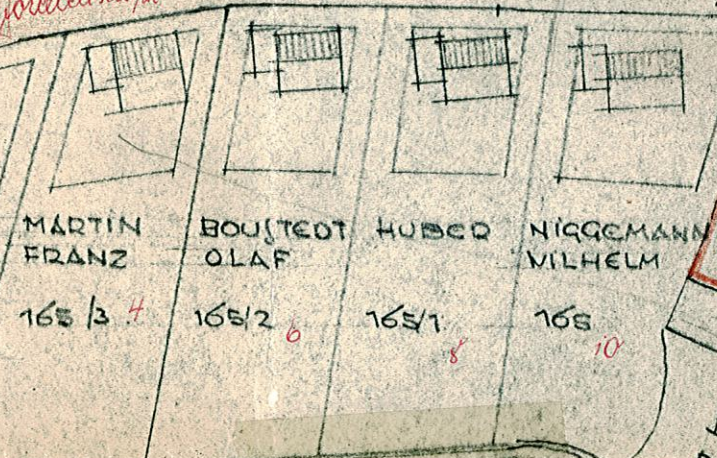 MARTIN
FRANZ
165/3 4
BOUSTEDT
OLAF
165/2 6
HUBER
165/1 8
NIGGEMANN
WILHELM
165 10